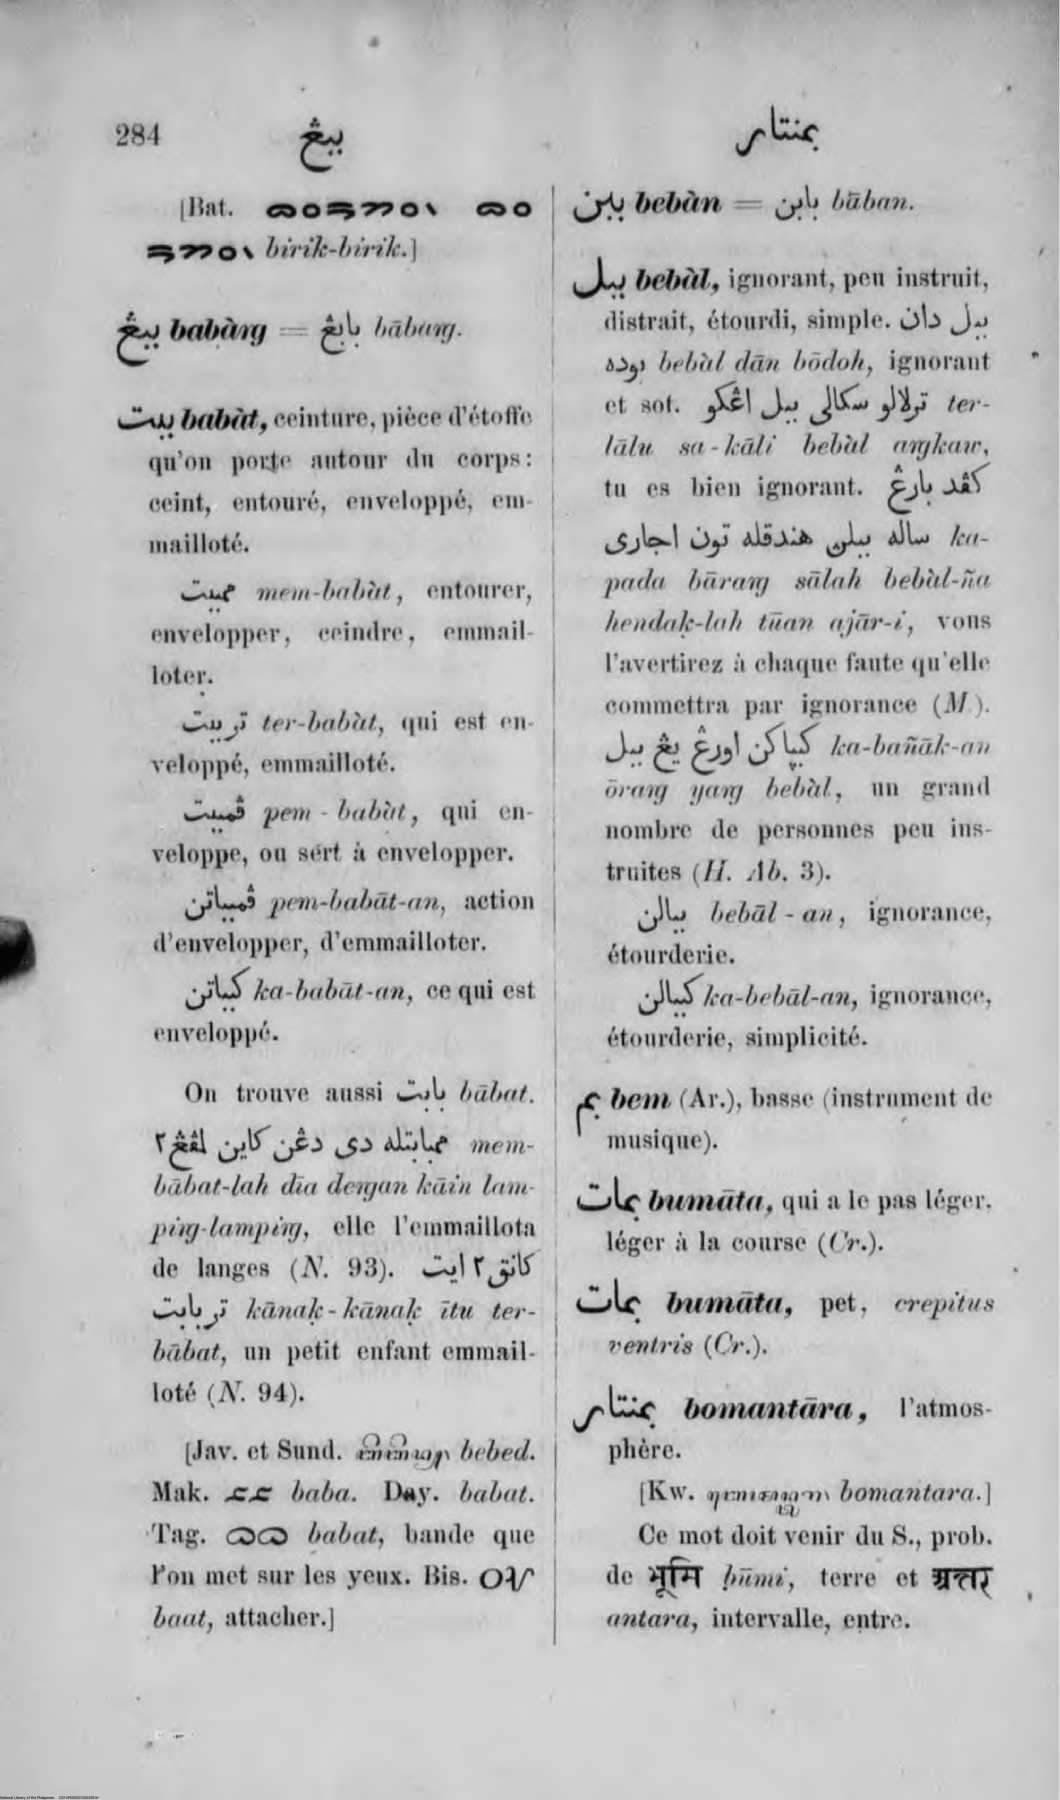 284 ببڠ بمنتار
[Bat.
birik-birik.]
ببڠ babàṅg = بابڠ bābaṅg.
ببت babàt, ceinture, pièce d'étoffe
qu'on porte autour du corps:
ceint, entouré, enveloppé, em-
mailloté.
ممببت mem-babàt, entourer,
envelopper, ceindre, emmail-
loter.
ترببت ter-babàt, qui est en-
veloppé, emmailloté.
ڤمببت pem-babàt, qui en-
veloppe, ou sert à envelopper.
ڤمبباتن pem-babāt-an, action
d'envelopper, d'emmailloter.
کبباتن ka-babāt-an, ce qui est
enveloppé.
On trouve aussi بابت bābat.
ممبابتله دي دڠن کاين لمڤڠ٢ mem-
bābat-lah dīa deṅgan kāin lam-
piṅg-lampiṅg, elle l'emmaillota
de langes (N. 93). کانق٢ ايت
تربابت kānaḳ-kānaḳ ītu ter-
bābat, un petit enfant emmail-
loté (N. 94).
[Jav. et Sund. bebed.
Mak. baba. Day. babat.
Tag. babat, bande que
l'on met sur les yeux. Bis.
baat, attacher.]
ببن bebàn = بابن bāban.
ببل bebàl, ignorant, peu instruit,
distrait, étourdi, simple. ببل دان
بوده bebàl dān bōdoh, ignorant
et sot. ترلالو سکالي ببل اڠکو ter-
lālu sa-kāli bebàl aṅgkaw,
tu es bien ignorant. کڤد بارڠ
ساله ببلڽ هندقله تون اجاري ka-
pada bāraṅg sālah bebàl-ña
hendaḳ-lah tūan ajār-i, vous
l'avertirez à chaque faute qu'elle
commettra par ignorance (M.).
کبڽاکن اورڠ يڠ ببل ka-bañāk-an
ōraṅg yaṅg bebàl, un grand
nombre de personnes peu ins-
truites (H. Ab. 3).
ببالن bebāl-an, ignorance,
étourderie.
کببالن ka-bebāl-an, ignorance,
étourderie, simplicité.
بم bem (Ar.), basse (instrument de
musique).
بمات bumāta, qui a le pas léger,
léger à la course (Cr.).
بمات bumāta, pet, crepitus
ventris (Cr.).
بمنتار bomantāra, l'atmos-
phère.
[Kw. bomantara.]
Ce mot doit venir du S., prob.
de भूमि būmi, terre et अन्तर्
antara, intervalle, entre.